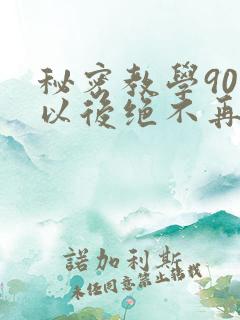 秘密教學90
以後绝不再
諾加利斯
未经同意禁止转载